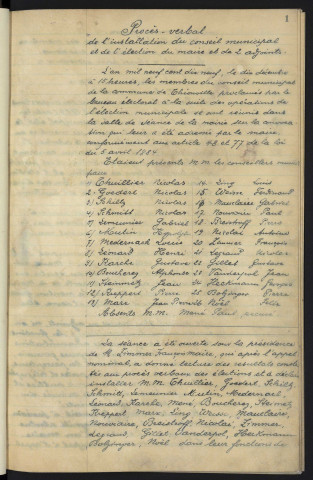 1
Procès-verbal
de l'installation du conseil municipal
et de l'élection du maire et de 2 adjoints.
L'an mil neuf cent dix neuf, le dix décembre
à 15 heures, les membres du conseil municipal
de la commune de Thionville proclamés par le
bureau électoral à la suite des opérations de
l'élection municipale se sont réunis dans
la salle de séance de la mairie sur la convoca-
tion qui leur a été adressée par le maire,
conformément aux articles 48 et 77 de la loi
du 5 avril 1884
Etaient présents M.M. les conseillers muni-
cipaux
1) Thuillier Nicolas 14 Ling Louis
2) Goederl Nicolas 15 Weiss Ferdinand
3) Schiltz Nicolas 16 Maudaire Gabriel
4) Schmitt Nicolas 17 Nonviaire Paul
5) Semeunier Gabriel 18 Breistroff Pierre
6) Mutin 19 Nicolas Antoine
7) Medernach Louis 20 Limmer François
8) Lémard Henri 21 Legrand Nicolas
9) Karche Gustave 22 Gillet Gustave
10) Boucheres Alphonse 23 Vanderpol Jean
11) Hemmetz Jean 24 Heckmann Jacques
12) Reppert 25 Bolzinger Pierre
13) Marx 26 Noël
Absents M.M. Mené Paul
La séance a été ouverte sous la présidence
de M. Limmer François maire, qui après l'appel
nominal, a donné lecture des résultats consta-
tés aux procès verbaux des élections et a déclaré
installer M.M. Thuillier, Goederl, Schiltz,
Schmitt, Semeunier, Mutin, Medernach
Lémard, Karche, Mené, Boucheres, Hemmetz
Reppert, Marx, Ling, Weiss, Maudaire,
Nonviaire, Breistroff, Nicolas, Limmer,
Legrand, Gillet, Vanderpol, Heckmann
Bolzinger, Noël dans leurs fonctions de